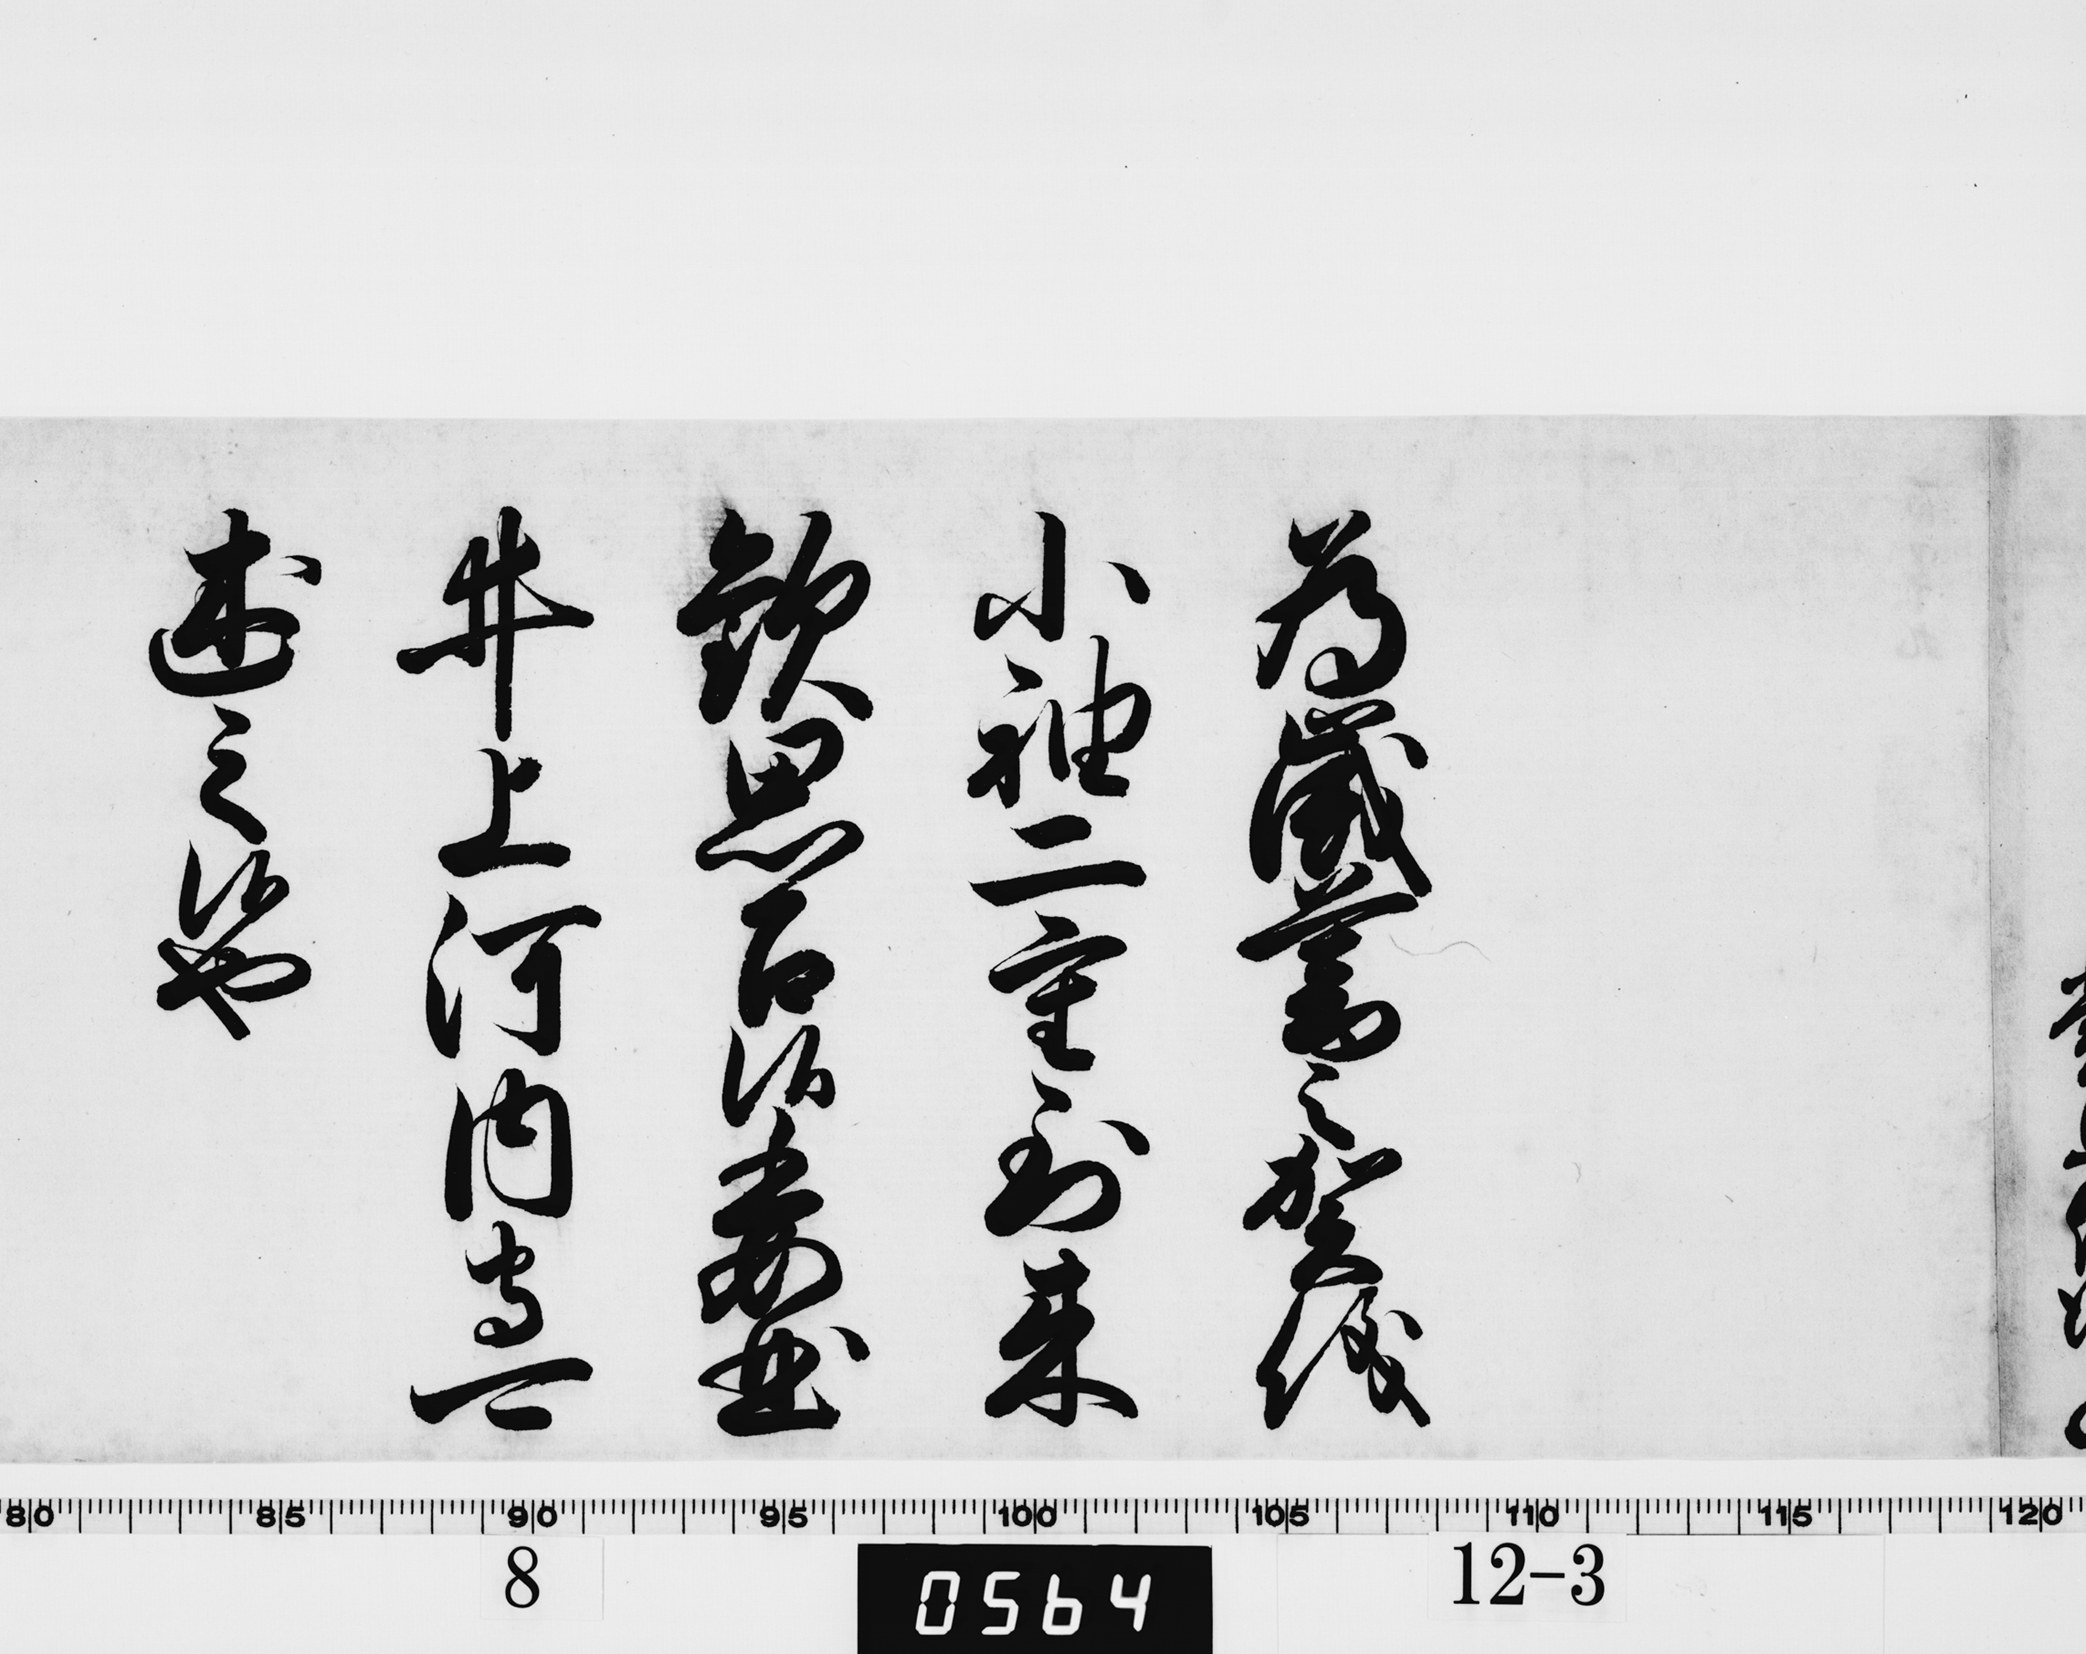 為歳暮之賀儀
小袖二重到来
歓思召候委曲
井上河内守可
述之候也
80 85 90 95 100 105 110 115 120
8 0564 12-3